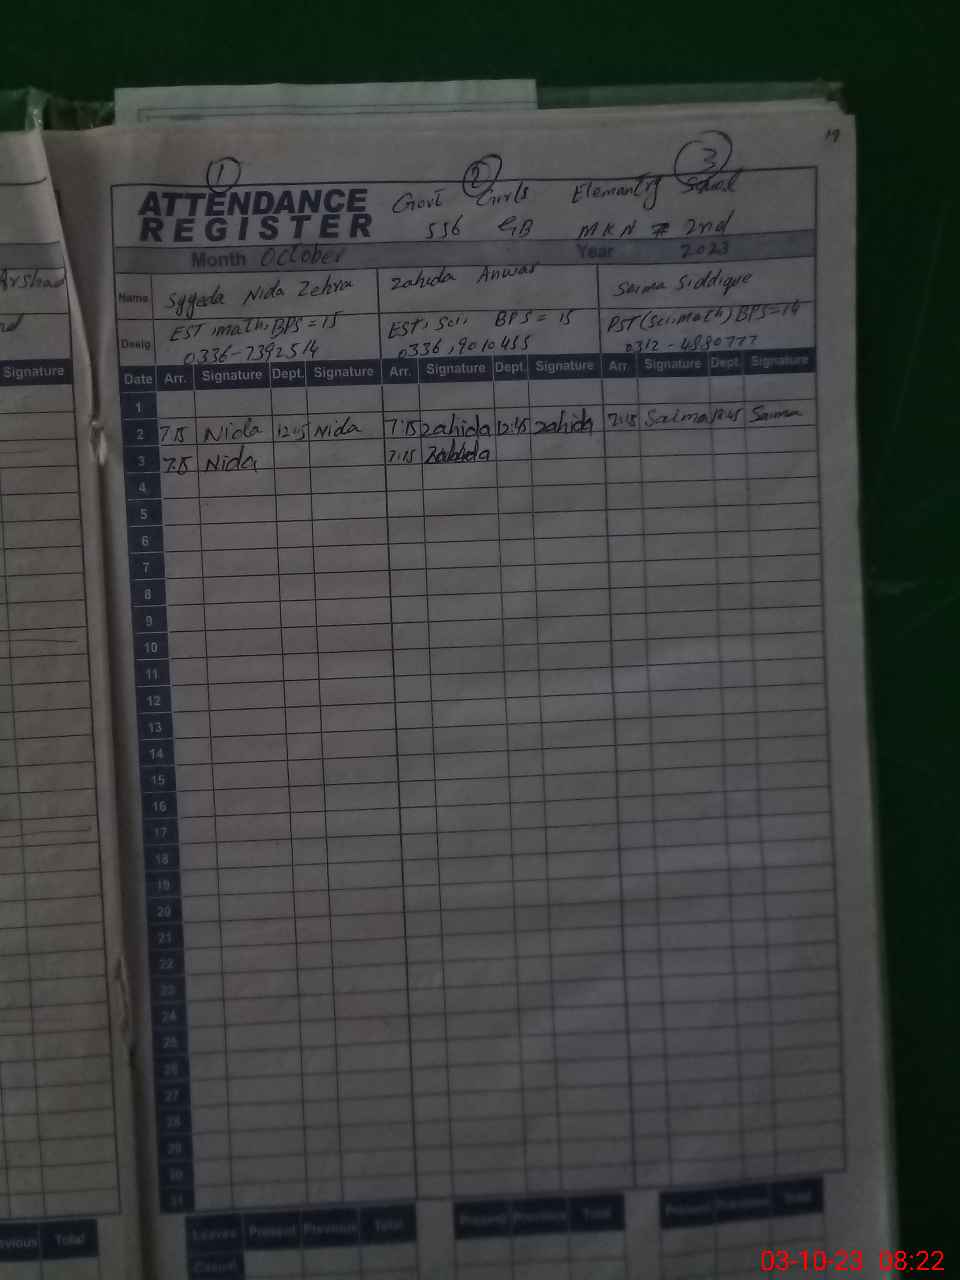 19
1 2 3
ATTENDANCE REGISTER
Govt Girls Elemantry School
556 GB MKN # 2nd
Month October Year 2023
Arshad
Name Syyeda Nida Zehra Zahida Anwar Saima Siddique
Desig EST, math, BPS = 15 EST, Sci, BPS = 15 PST (Sci, math) BPS = 14
0336-7392514 0336, 9010455 0312-4880777
Signature
Date Arr. Signature Dept. Signature Arr. Signature Dept. Signature Arr. Signature Dept. Signature
1
2 7:15 Nida 12:45 Nida 7:15 Zahida 12:45 Zahida 7:15 Saima 12:45 Saima
3 7:15 Nida 7:15 Zahida
4
5
6
7
8
9
10
11
12
13
14
15
16
17
18
19
20
21
22
23
24
25
26
27
28
29
30
31
Total
Leaves Present Previous Total Present Previous Total Present Previous Total
Casual
03-10-23 08:22